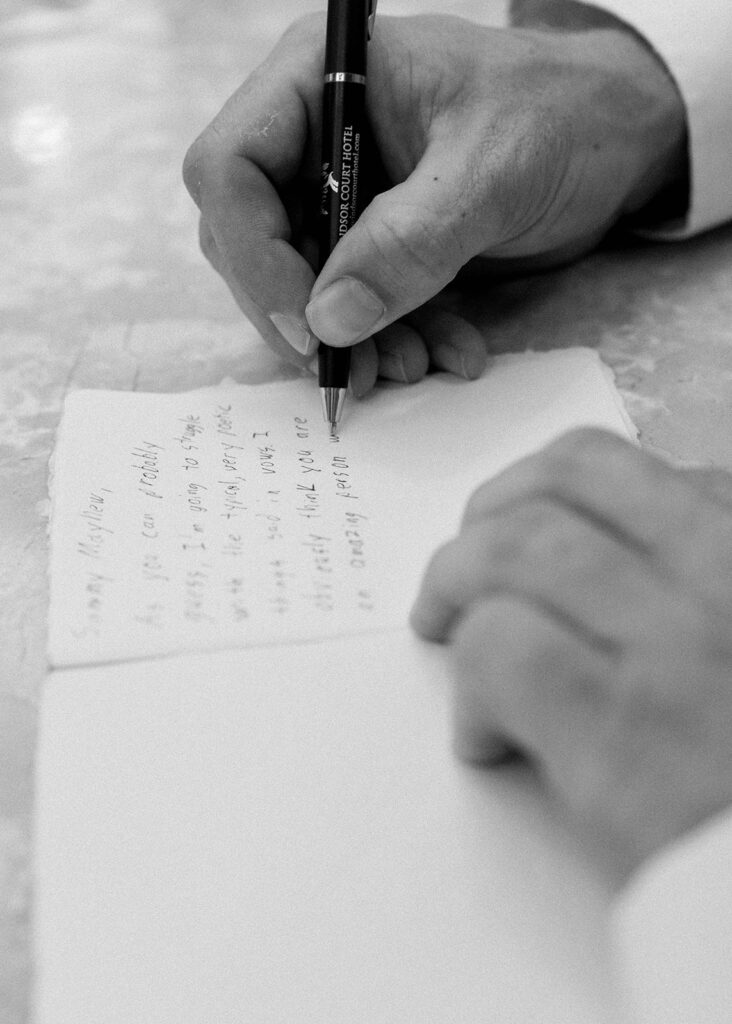 Mayhew,
As you can probably
guess, I'm going to struggle
with the typical, very poetic
in vows. I
obviously think you are
an amazing person
NDSOR COURT HOTEL
indsorcourthotel.com